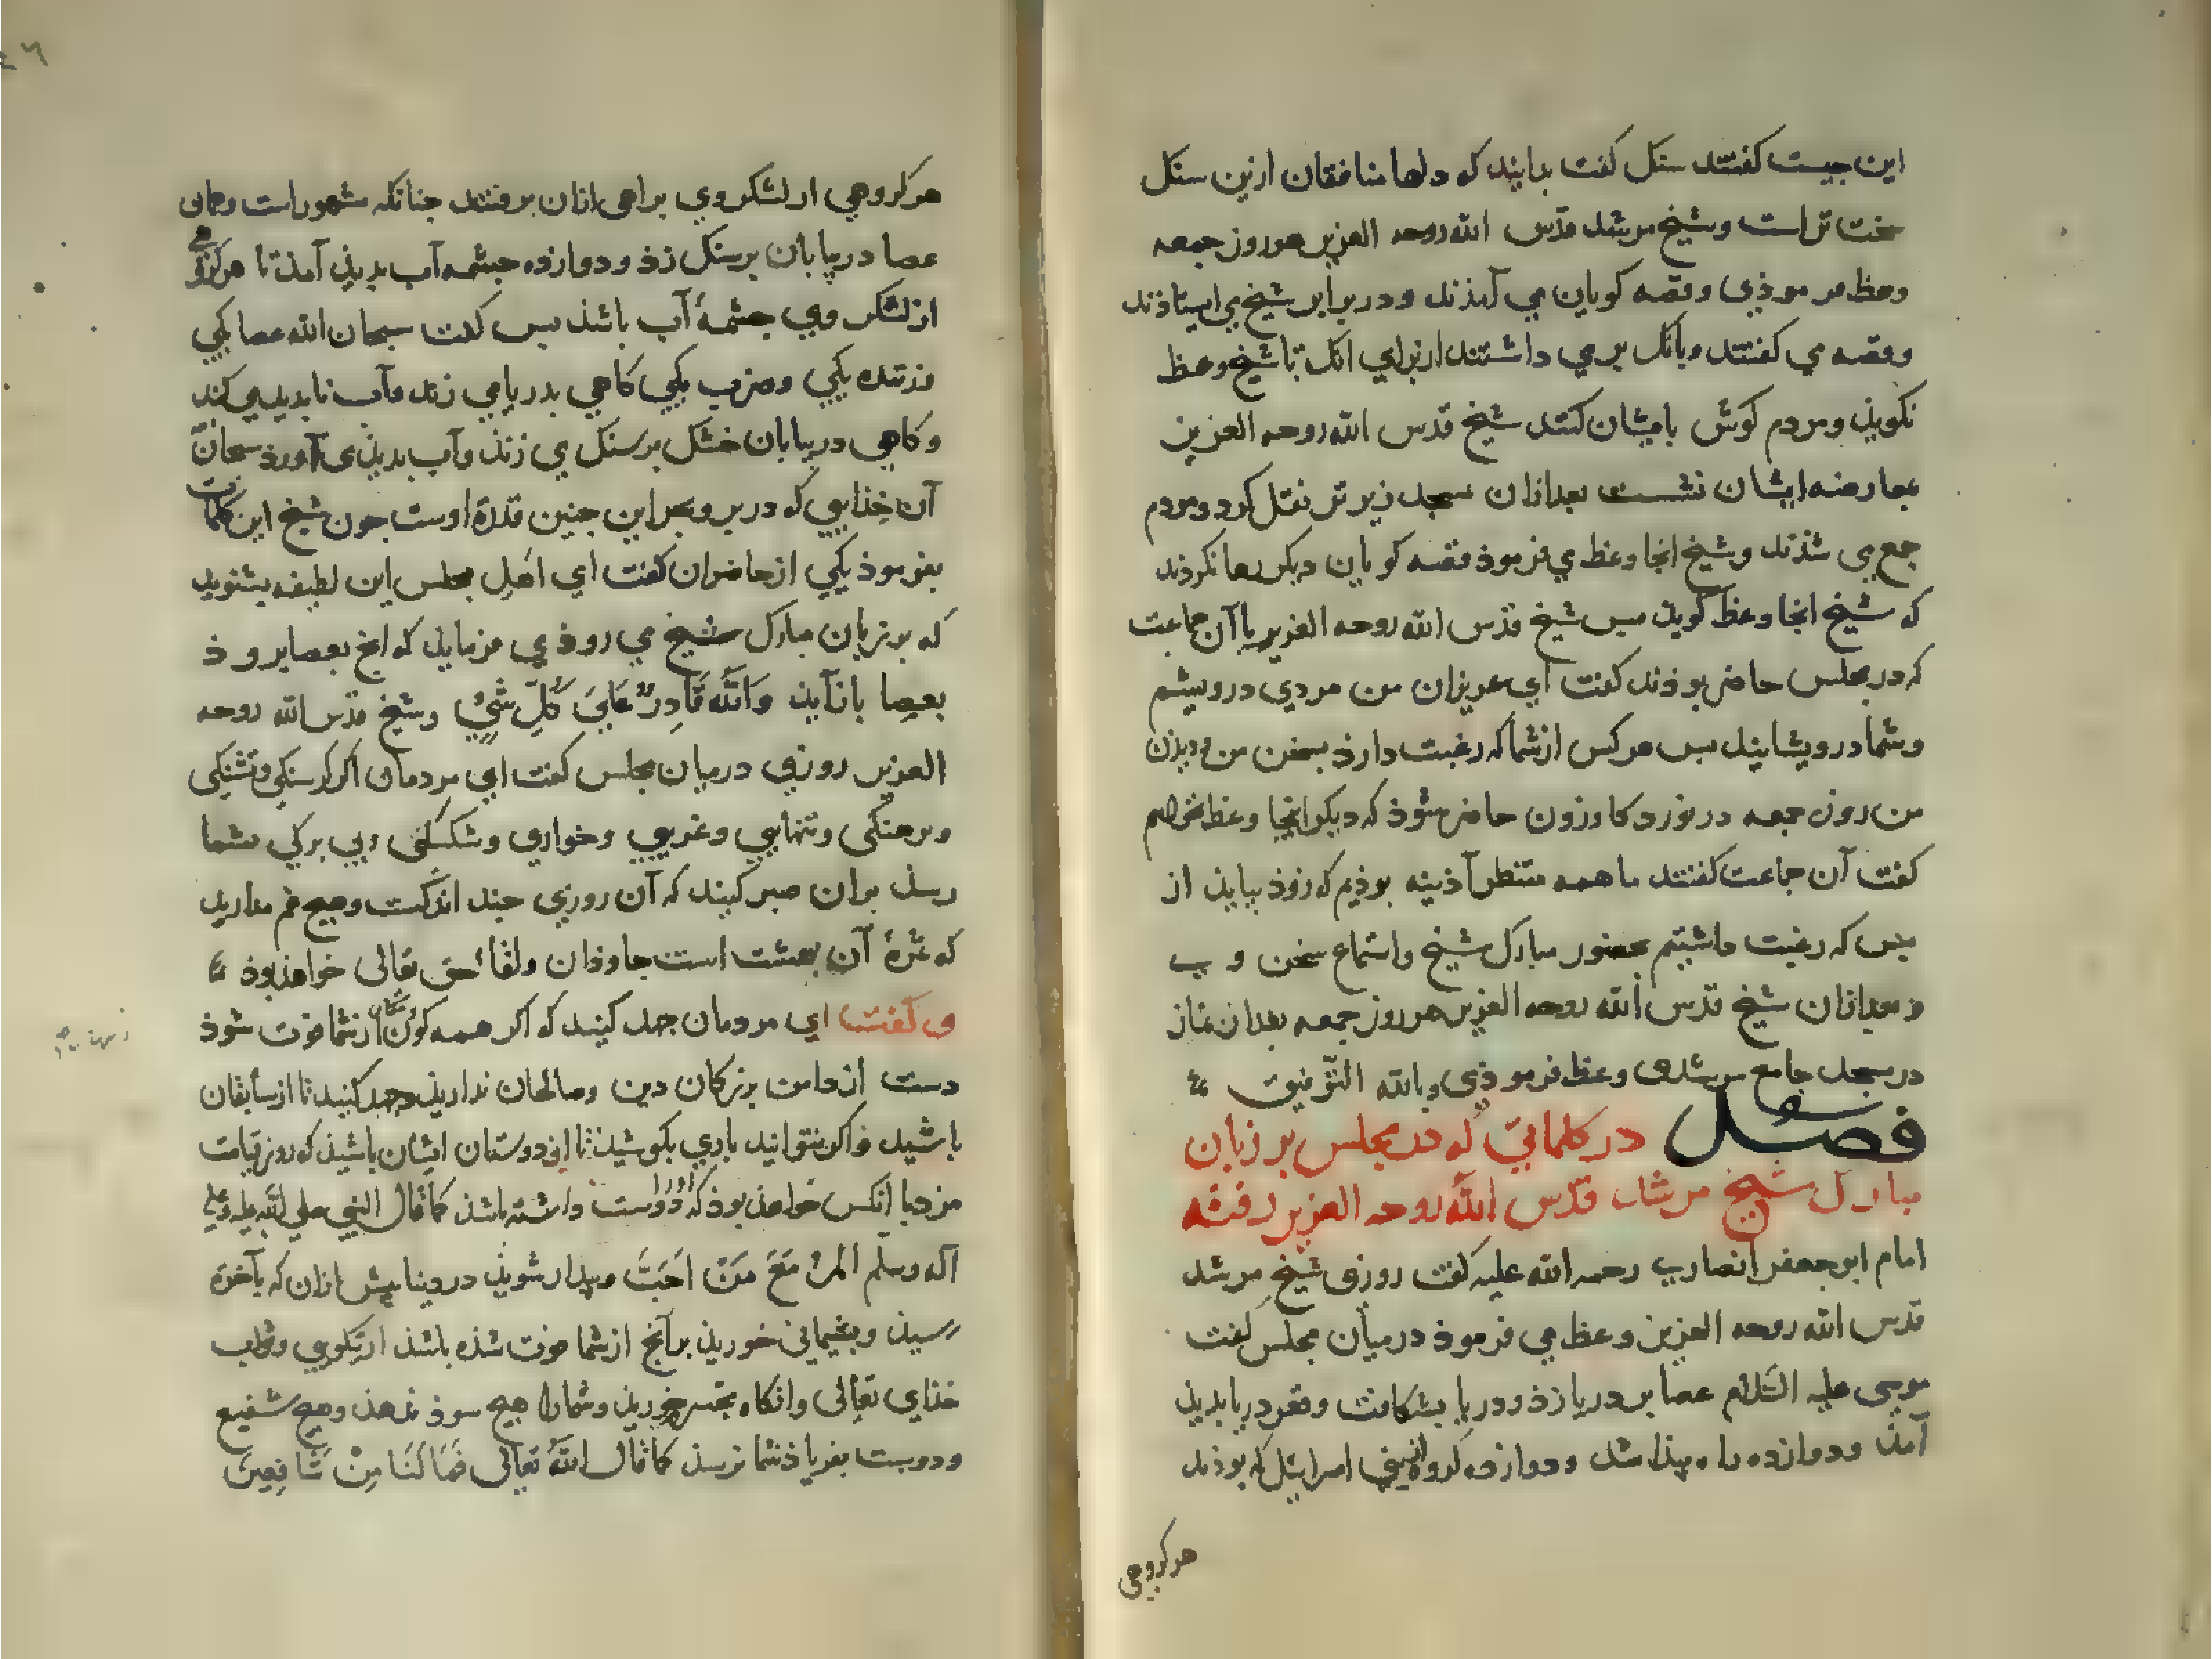 این جیست کفتند سنک کفت بدانید که دلها منافقان ازین سنک
سخت تر است و شیخ مرشد قدس الله روحه العزیز هر روز جمعه
وعظ می فرموذی و قصه کویان می آمذند و در برابر شیخ می ایستاذند
و قصه می کفتند و بانک بر می داشتند از برای انک تا شیخ وعظ
نکویذ و مردم کوش بایشان کنند شیخ قدس الله روحه العزیز
بمعارضه ایشان نشست بعد ازان بمسجد زیرتر نقل کرد و مردم
جمع می شذند و شیخ انجا وعظ می فرموذ قصه کویان دیکر رها نکردند
که شیخ انجا وعظ کویذ بس شیخ قدس الله روحه العزیز با آن جماعت
که در مجلس حاضر بوذند کفت ای عزیزان من مردی درویشم
و شما درویشانید بس هر کس از شما که رغبت دارذ بسخن من و دیذن
من روز جمعه در نورد کازرون حاضر شوذ که دیکر اینجا وعظ نخواهم
کفت آن جماعت کفتند ما همه منتظر آذینه بوذیم که زوذ بیایذ از
بس که رغبت داشتیم بحضور مبارک شیخ و استماع سخن وی
و بعد ازان شیخ قدس الله روحه العزیز هر روز جمعه بعد از نماز
در مسجد جامع مرشدی وعظ فرموذی و بالله التوفیق
فصل در کلماتی که در مجلس بر زبان
مبارک شیخ مرشد قدس الله روحه العزیز رفته
امام ابو جعفر انصاری رحمه الله علیه کفت روزی شیخ مرشد
قدس الله روحه العزیز وعظ می فرموذ در میان مجلس کفت
موسی علیه السلام عصا بر دریا زذ و دریا بشکافت و قعر دریا بدیذ
آمذ و دوازده راه بیذا شد و دوازده کروه بنی اسرائیل که بوذند
هر کروهی
هر کروهی از لشکر وی براهی ازان برفتند جنانکه مشهور است و همان
عصا در بیابان بر سنک زذ و دوازده جشمه آب بدیذ آمذ تا هر کروهی
از لشکر وی جشمهٔ آب باشذ بس کفت سبحان الله عصا یکی
و زننده یکی و ضرب یکی کاهی بدریا می زند و آب نابدید می کند
و کاهی در بیابان خشک بر سنک می زنذ و آب بدیذ می آورذ سبحان
آن خذایی که در بر و بحر این جنین قدرة اوست جون شیخ این کلمات
بفرموذ یکی از حاضران کفت ای اهل مجلس این لطیفه بشنوید
که بر زبان مبارک شیخ می روذ می فرمایذ که انج بعصا بروذ
بعصا باز آیذ وَاللّه قَادِرٌ عَلَی کُلِّ شَیْءٍ و شیخ قدس الله روحه
العزیز روزی در میان مجلس کفت ای مردمان اکر کرسنکی و تشنکی
و برهنکی و تنهایی و غریبی و خواری و شکستکی و بی برکی بشما
رسذ بران صبر کنید که آن روزی جند اندکست و هیج غم مدارید
که ثمرهٔ آن بهشت است جاوذان و لقاء حق تعالی خواهذ بوذ
و کفت ای مردمان جهد کنید که اکر همه کونکان از شما فوت شوذ
دست از دامن بزرکان دین و صالحان نداریذ و جهد کنید تا از سابقان
باشید و اکر نتوانید باری بکوشید تا از دوستان ایشان باشید که روز قیامت
مرد با انکس خواهذ بوذ که او را دوست داشته باشذ کما قال النبی صلی الله علیه و علی
آله وسلم المرء مَعَ مَنْ احَبَّ و بیدار شویذ در دنیا بیش ازان که بآخرة
رسیذ و بشیمانی خوریذ بر آنج از شما فوت شذه باشذ از نکویی و ثواب
خذای تعالی و انکاه تحسر خوریذ و شما را هیج سوذ ندهذ و هیج شفیع
و دوست بفریاذ شما نرسذ کما قال اللّه تعالی فَمَا لَنَا مِنْ شَافِعِینَ